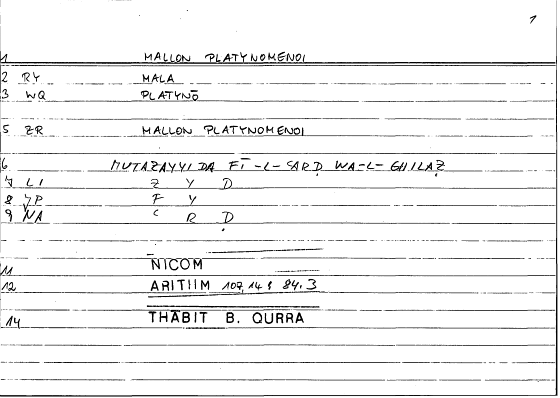 1
1 MALLON PLATYNOMENOI
2 RY MALA
3 WQ PLATYNŌ
5 ZR MALLON PLATYNOMENOI
6 MUTAZAYYIDA FĪ-L-ʿARḌ WA-L-GHILAẒ
7 LI Z Y D
8 JP F Y
9 NA ʿ R Ḍ
11 NICOM
12 ARITIIM 107,14 & 84.3
14 THĀBIT B. QURRA